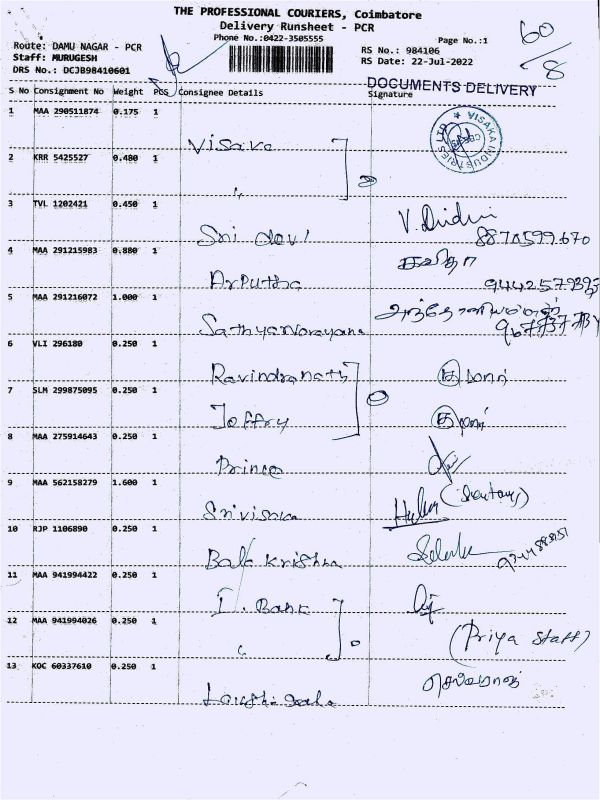 THE PROFESSIONAL COURIERS, Coimbatore
Delivery Runsheet - PCR
Phone No.:0422-3505555
Page No.:1
60/8
Route: DAMU NAGAR - PCR
RS No.: 984106
Staff: MURUGESH
RS Date: 22-Jul-2022
DRS No.: DCJB98410601
DOCUMENTS DELIVERY
S No Consignment No Weight PCS Consignee Details Signature
1 MAA 290511874 0.175 1 Visaka
VISAKA INDUSTRIES LTD
2 KRR 5425527 0.480 1 "
3 TVL 1202421 0.450 1 Sri devi 8870599670
4 MAA 291215983 0.880 1 Arputha கவிதா
5 MAA 291216072 1.000 1 Sathyanarayana
6 VLI 296180 0.250 1 Ravindranath குமார்
7 SLM 299875095 0.250 1 Joffry குமார்
8 MAA 275914643 0.250 1 Prince
9 MAA 562158279 1.600 1 Srivisaka
10 RJP 1106890 0.250 1 Bala Krishna
11 MAA 941994422 0.250 1 I. Bank
12 MAA 941994026 0.250 1 " (Priya staff)
13 KOC 60337610 0.250 1